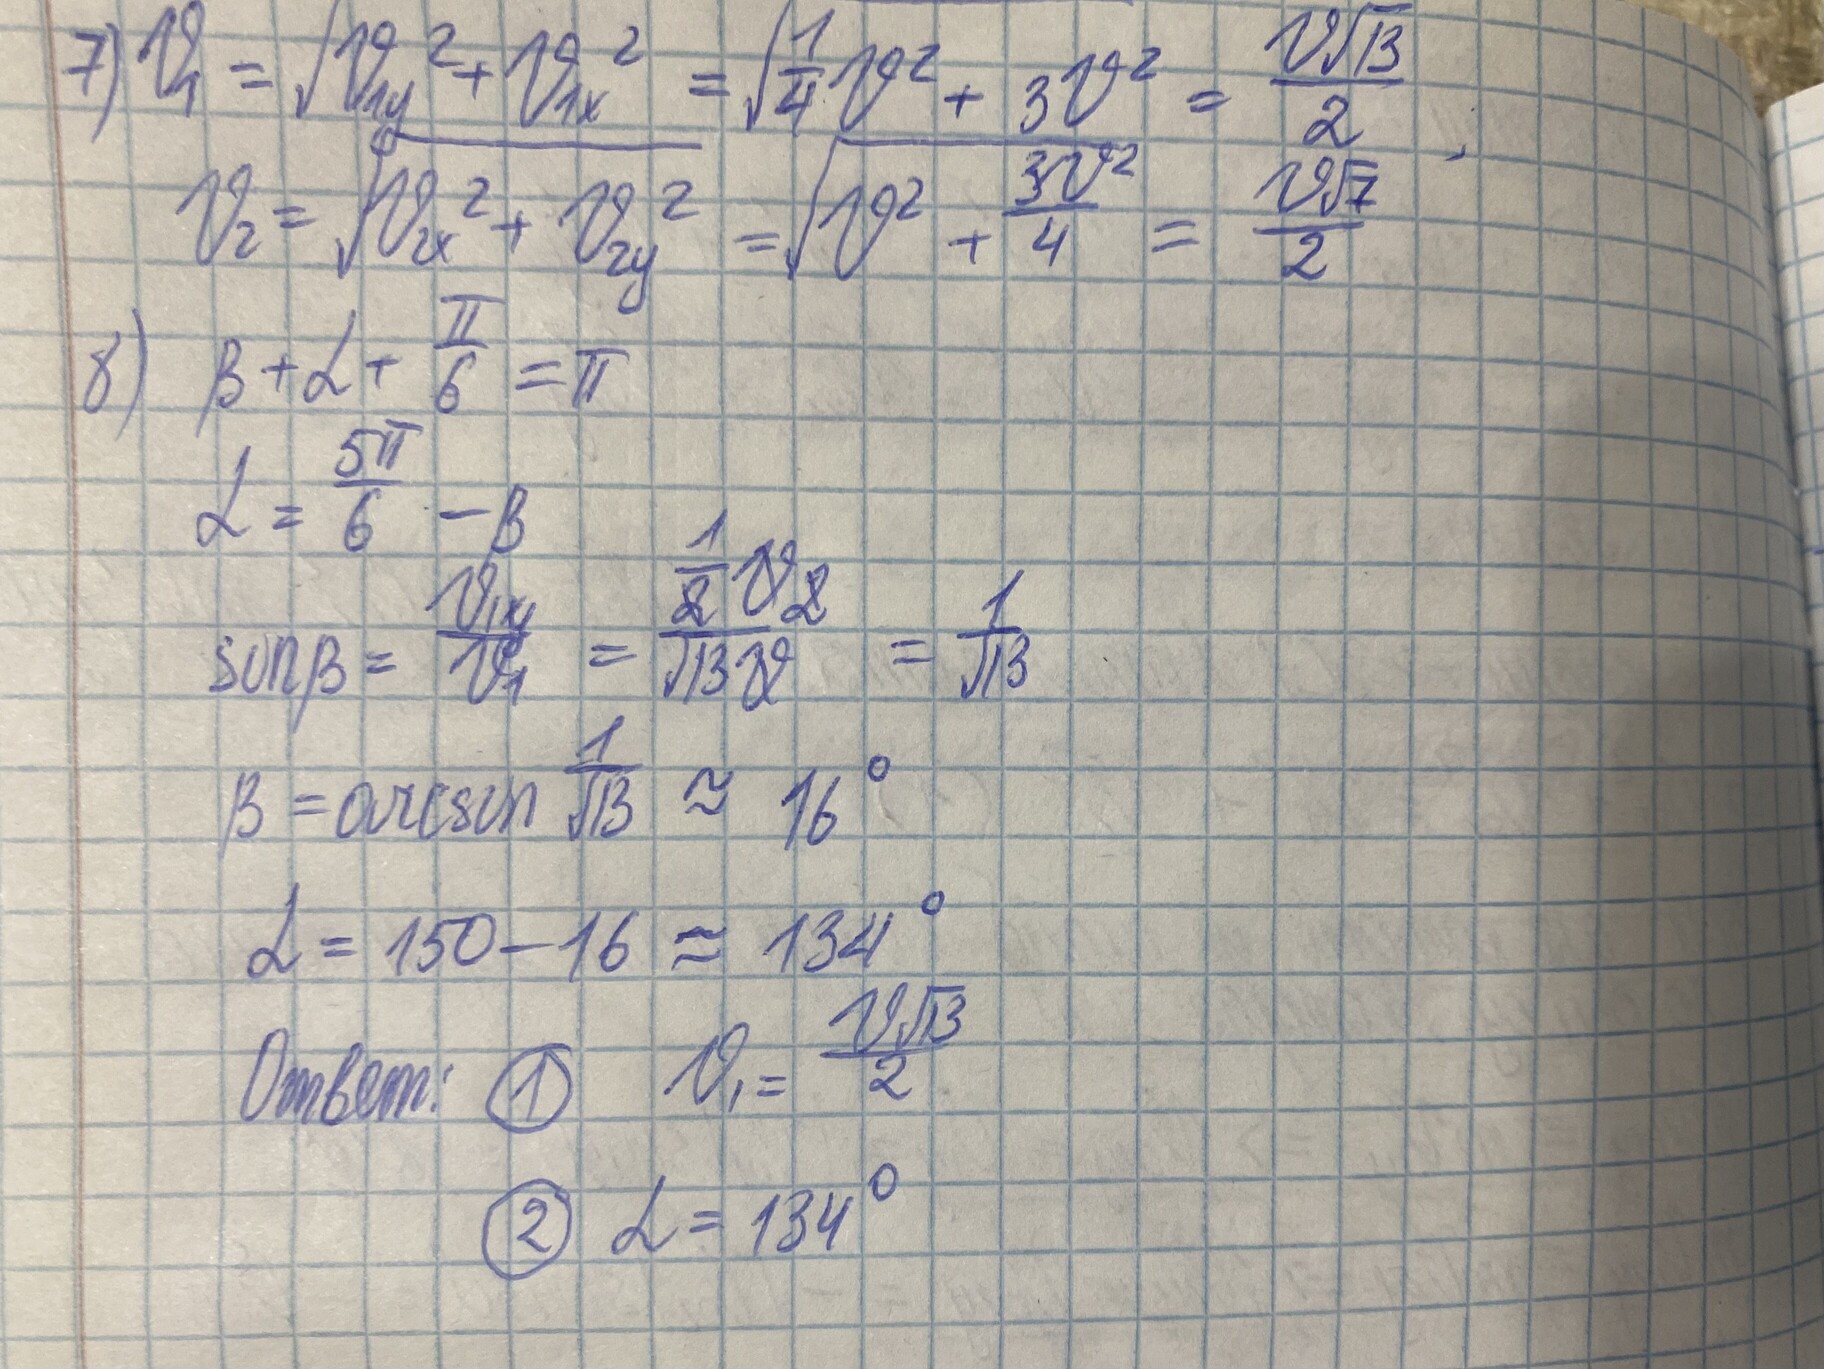 7) V₁ = √(V₁y² + V₁x²) = √(1/4 V² + 3V²) = V√13/2 ;
V₂ = √(V₂x² + V₂y²) = √(V² + 3V²/4) = V√7/2
8) β + α + π/6 = π
α = 5π/6 - β
sinβ = V₁y/V₁ = (1/2 V 2)/(√13 V) = 1/√13
β = arcsin 1/√13 ≈ 16°
α = 150 - 16 ≈ 134°
Ответ: ① V₁ = V√13/2
② α = 134°